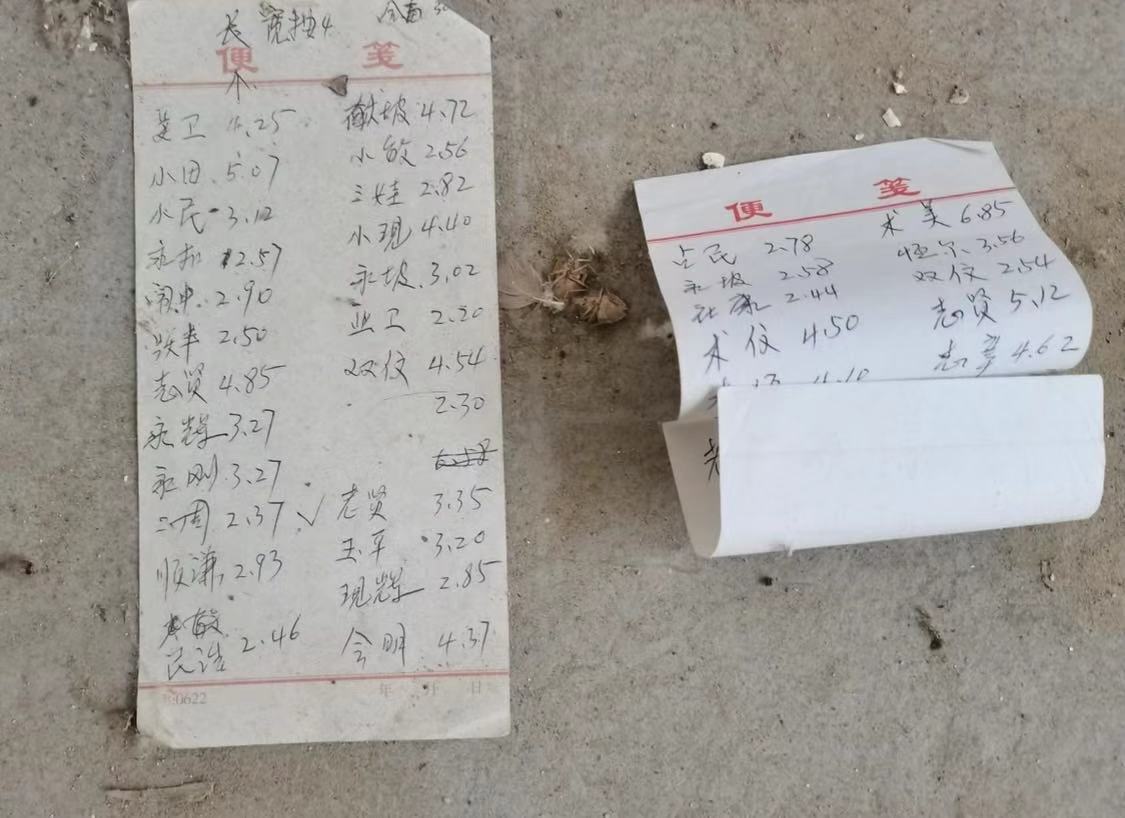 长 宽 4
便 笺
卫 4.25
小田 5.07
小民 3.12
永 2.57
2.90
跃丰 2.50
志贤 4.85
永辉 3.27
永刚 3.27
二周 2.37 √
顺谦 2.93
民 2.46
献坡 4.72
小敏 2.56
三娃 2.82
小现 4.40
永坡 3.02
亚卫 2.20
双仪 4.54
2.30
老贤 3.35
玉平 3.20
现辉 2.85
会明 4.37
0622 年 月 日
便 笺
占民 2.78
永坡 2.58
2.44
术仪 4.50
4.10
术美 6.85
恒尔 3.56
双仪 2.54
志贤 5.12
志 4.62